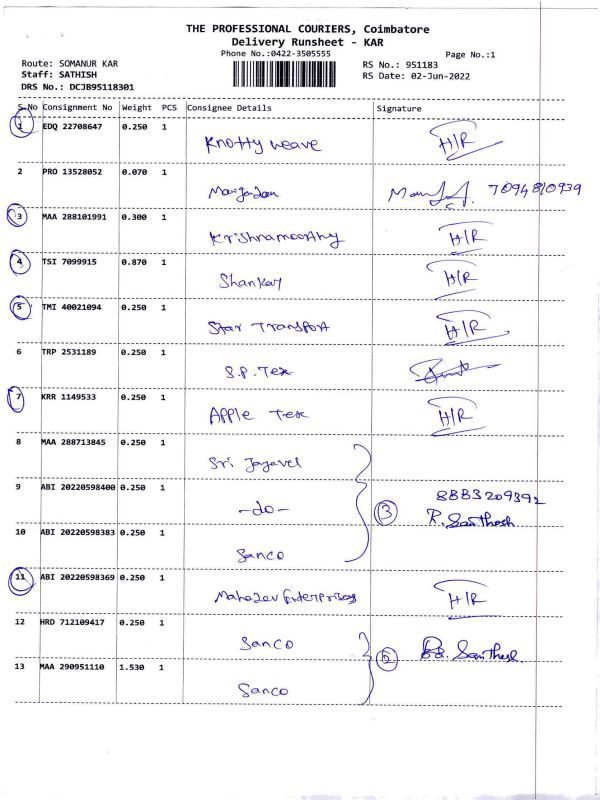 THE PROFESSIONAL COURIERS, Coimbatore
Delivery Runsheet - KAR
Phone No.:0422-3505555
Page No.:1
Route: SOMANUR KAR
RS No.: 951183
Staff: SATHISH
RS Date: 02-Jun-2022
DRS No.: DCJB95118301
S.No Consignment No Weight PCS Consignee Details Signature
1 EDQ 22708647 0.250 1
Knotty weave H/R
2 PRO 13528052 0.070 1
7094810939
3 MAA 288101991 0.300 1
Krishnamoorthy H/R
4 TSI 7099915 0.870 1
Shankar H/R
5 TMI 40021094 0.250 1
Star Transport H/R
6 TRP 2531189 0.250 1
S.P. Tex
7 KRR 1149533 0.250 1
Apple Tex H/R
8 MAA 288713845 0.250 1
Sri Jayavel
9 ABI 20220598400 0.250 1
-do- 3 8883209392
R. Santhosh
10 ABI 20220598383 0.250 1
Sanco
11 ABI 20220598369 0.250 1
Mahadev Enterprises H/R
12 HRD 712109417 0.250 1
Sanco
13 MAA 290951110 1.530 1
Sanco